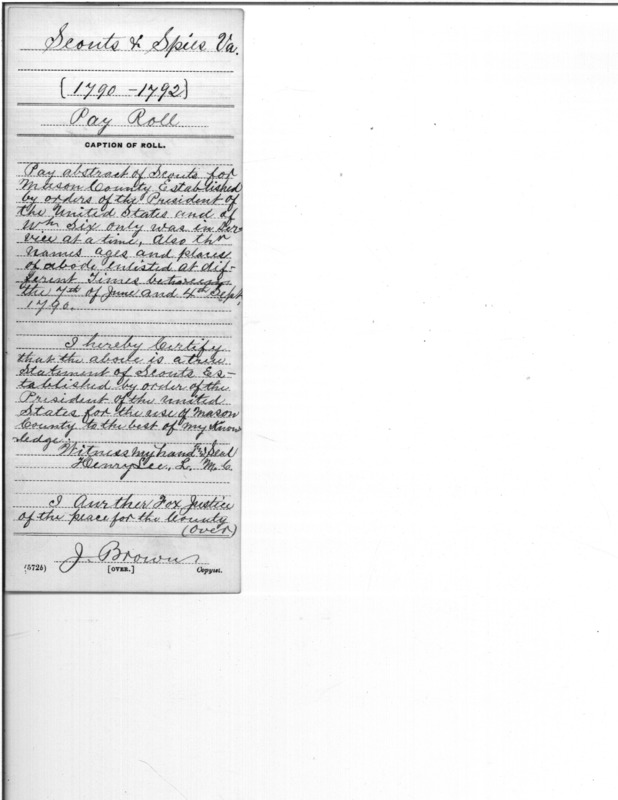 Scouts & Spies Va.
(1790-1792)
Pay Roll
CAPTION OF ROLL.
Pay abstract of Scouts for
Mason County Established
by orders of the President of
the United States and of
Wh Six only was in Ser-
vice at a time, Also thr
names ages and places
of abode enlisted at dif-
ferint Times between
the 7th of June and 4th Sept.
1790.
I hereby Certify
that the above is a true
Statement of Scouts Es-
tablished by order of the
President of the united
States for the use of Mason
County to the best of my Know
ledge.
Witness my hand & Seal
Henry Lee, L. M. C.
I Aurther Fox Justice
of the peace for the County
(Over)
J. Brown
(572b) [OVER.] Copyist.